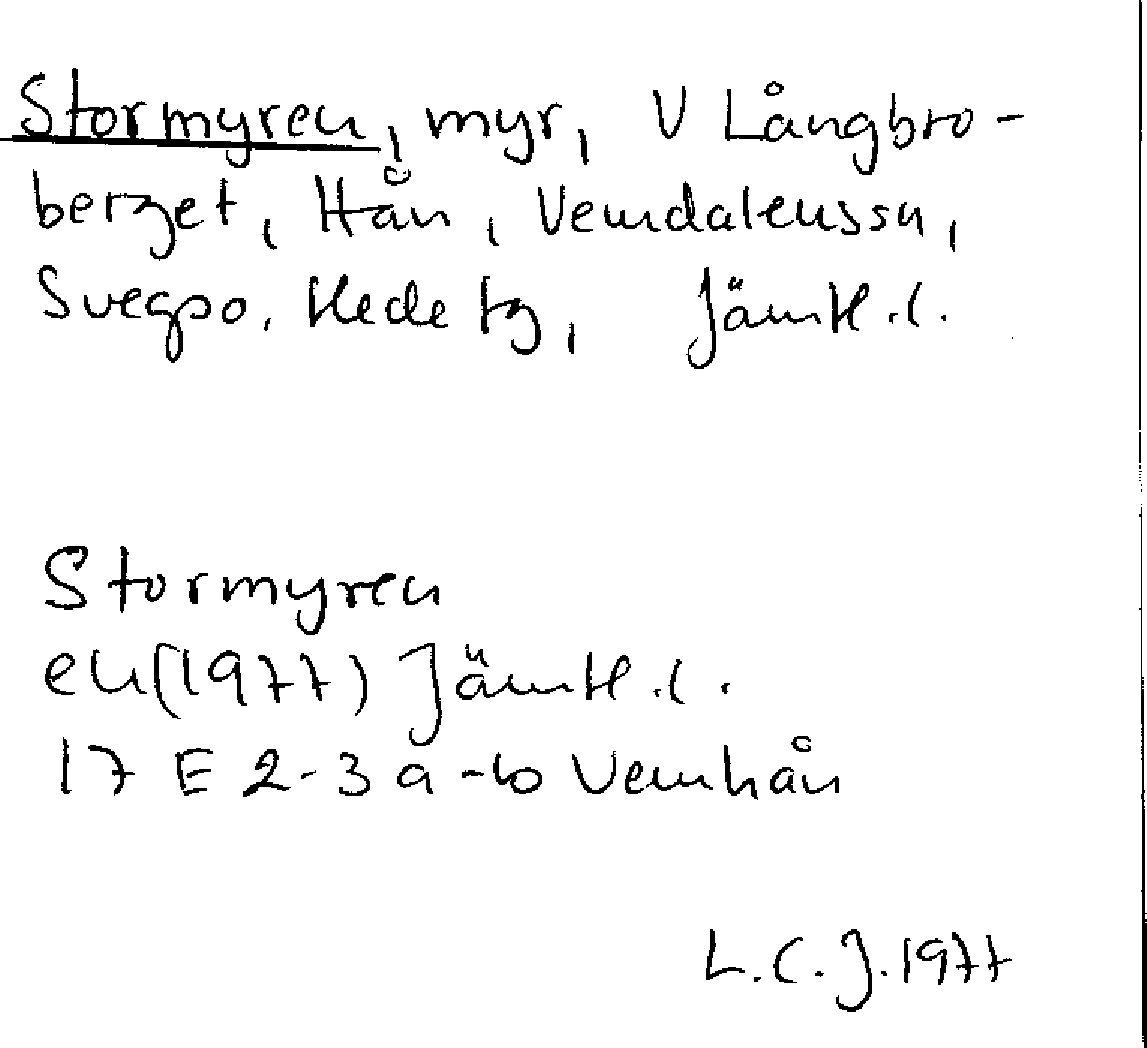 Stormyren, myr, V Långbro-
berget, Hån, Vemdalenssn,
Svegpo, Hede tg, Jämtl.l.
Stormyren
ek(1977) Jämtl.l.
17 E 2-3 a-b Vemhån
L.C.J.1977